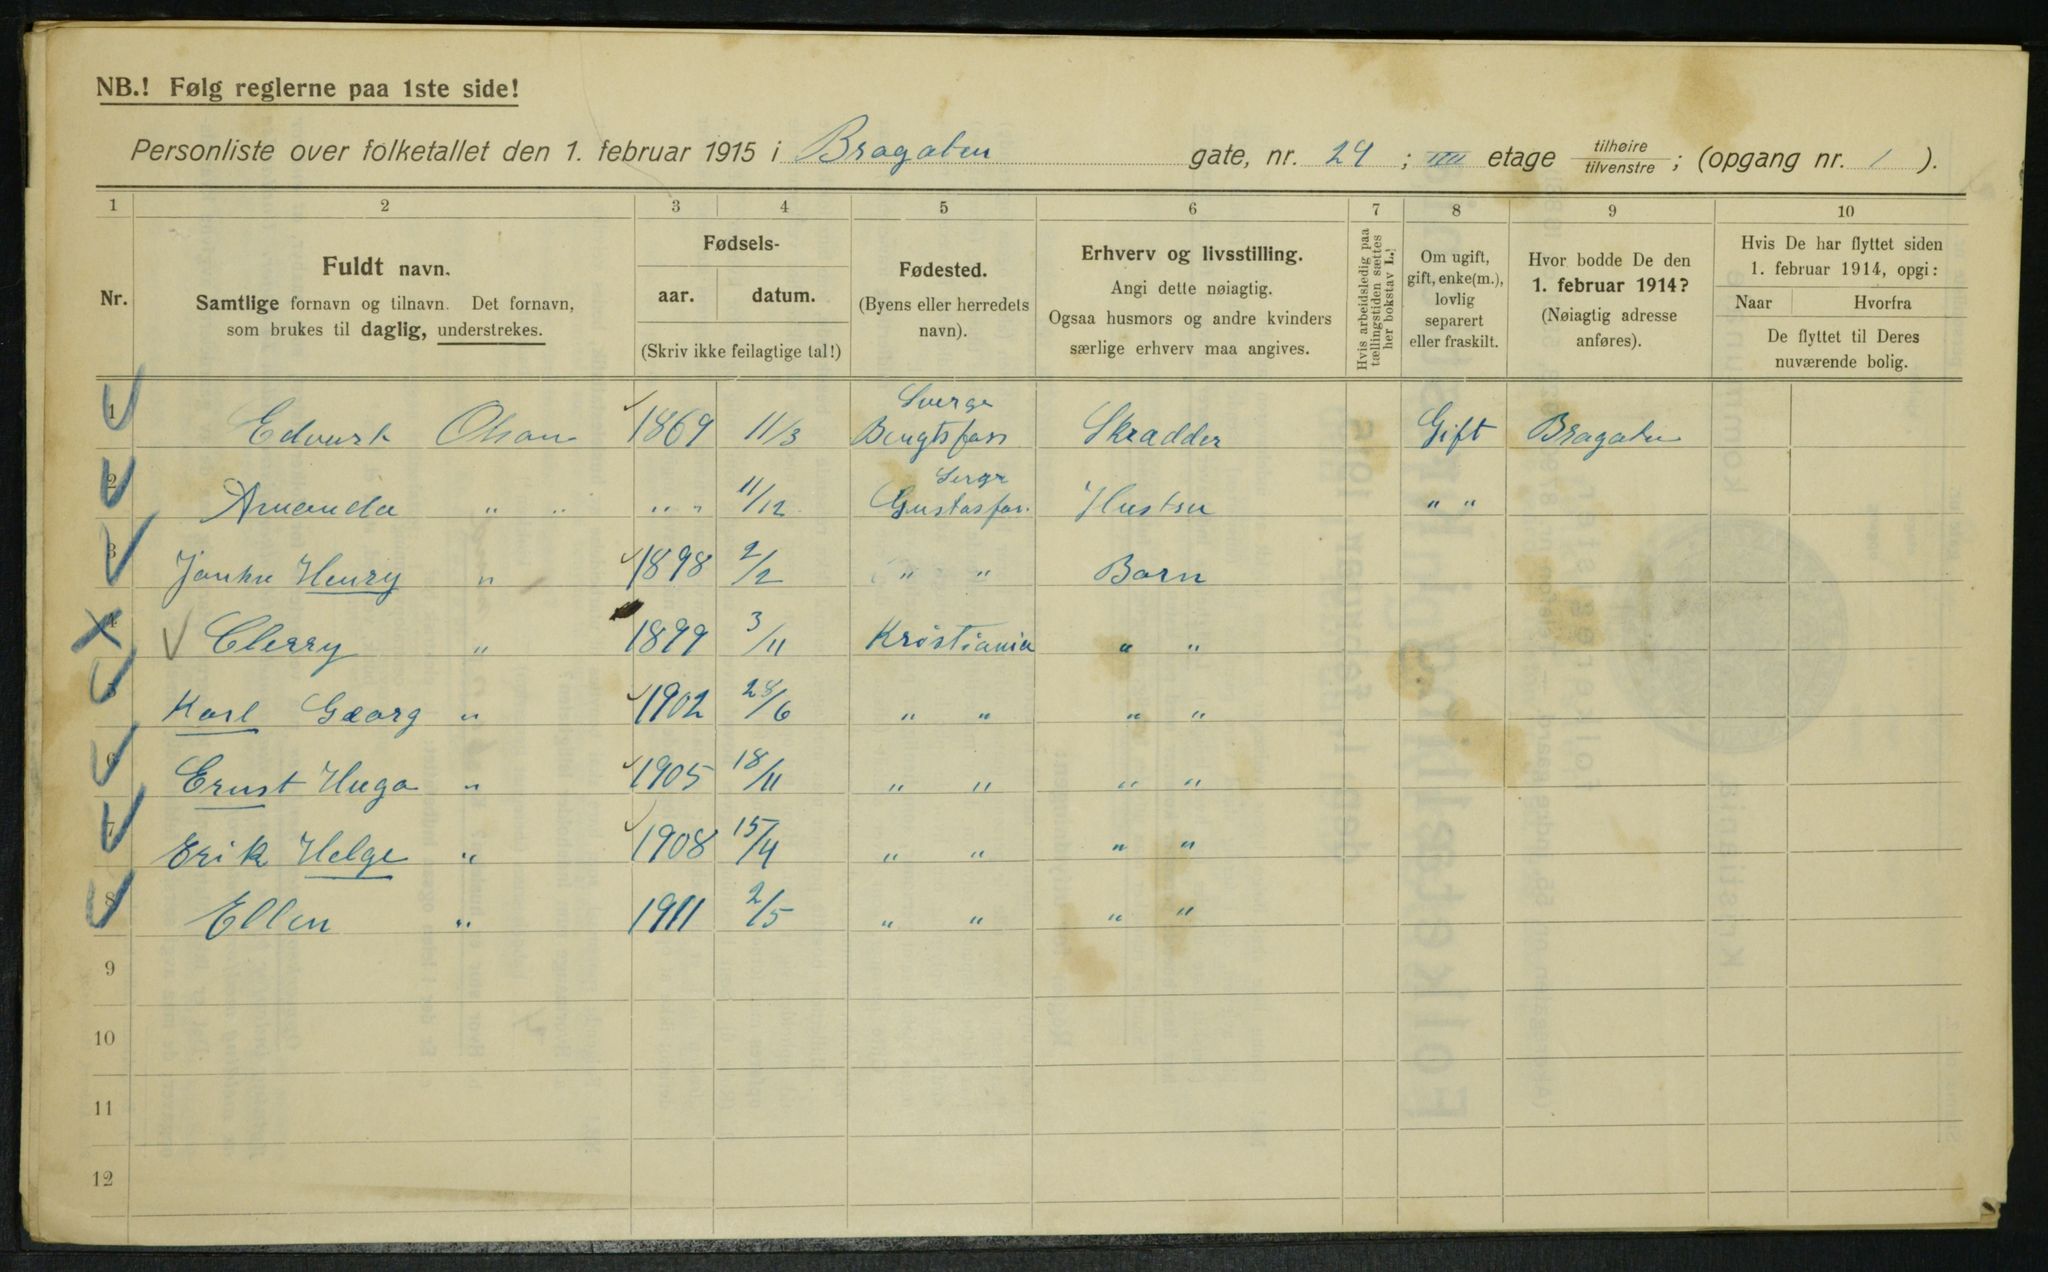 NB.! Følg reglerne paa 1ste side!
Personliste over folketallet den 1. februar 1915 i Bragaten gate, nr. 24 ; IIII etage tilhøire / tilvenstre ; (opgang nr. 1 ).
1 2 3 4 5 6 7 8 9 10
Nr.
Fuldt navn.
Samtlige fornavn og tilnavn. Det fornavn, som brukes til daglig, understrekes.
Fødsels-
aar. datum.
(Skriv ikke feilagtige tal!)
Fødested.
(Byens eller herredets navn).
Erhverv og livsstilling.
Angi dette nøiagtig.
Ogsaa husmors og andre kvinders særlige erhverv maa angives.
Hvis arbeidsledig paa tællingstiden sættes her bokstav L.!
Om ugift, gift, enke(m.), lovlig separert eller fraskilt.
Hvor bodde De den 1. februar 1914?
(Nøiagtig adresse anføres).
Hvis De har flyttet siden 1. februar 1914, opgi:
Naar Hvorfra
De flyttet til Deres nuværende bolig.
1 Edvart Olsan 1869 11/3 Sverge Bengtsfors Skradder Gift Bragaten
2 Amanda " " " " 11/12 Gustasfors Hustru " "
3 Henry " 1898 2/2 " " Barn
4 Cherry " 1899 3/11 Kristiania " "
5 Karl Georg " 1902 28/6 " " " "
6 Ernst Hugo " 1905 18/11 " " " "
7 Erik Helge " 1908 15/4 " " " "
8 Ellen " 1911 2/5 " " " "
9
10
11
12